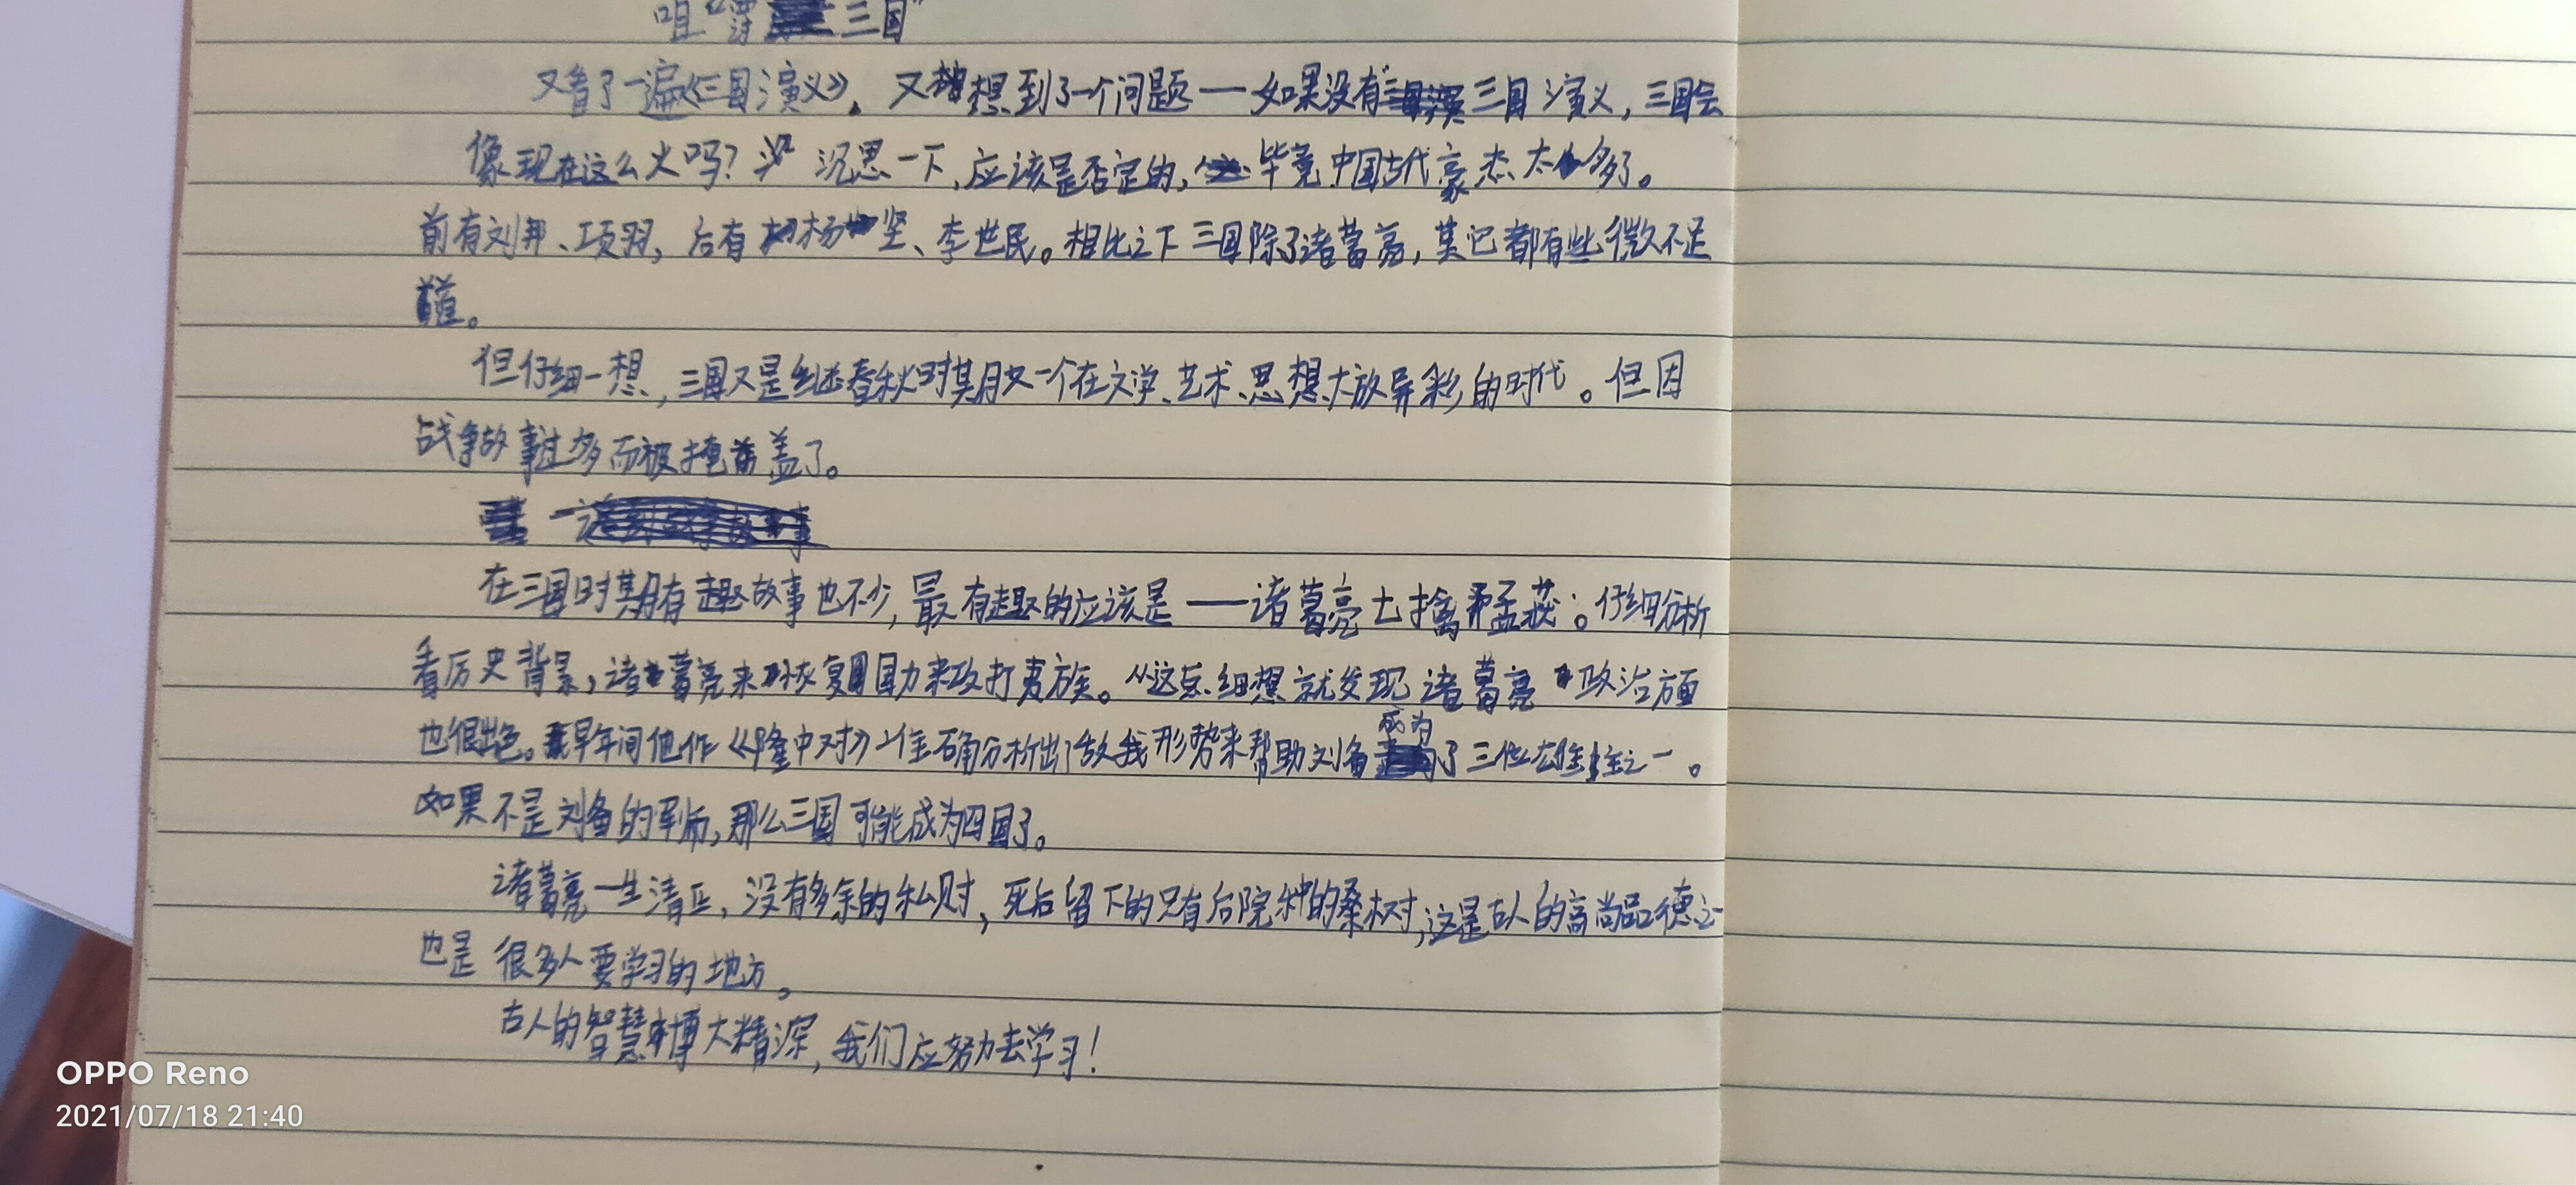 三国”
又看了一遍《三国演义》。又想到了一个问题一如果没有三国演义，三国会
像现在这么火吗？沉思一下，应该是否定的，毕竟中国古代豪杰太多了。
前有刘邦、项羽，后有杨坚、李世民。相比之下三国除了诸葛亮，其它都有些微不足
道。
但仔细一想，三国又是继春秋时期又一个在文学、艺术、思想大放异彩的时代。但因
战争故事过多而被掩盖了。
在三国时期有趣故事也不少，最有趣的应该是——诸葛亮七擒孟获。仔细分析
看历史背景，诸葛亮来恢复国力来攻打夷族。从这点细想就发现诸葛亮政治方面
也很出色。早年间他作《隆中对》准确分析出了敌我形势来帮助刘备成为了三位雄主之一。
如果不是刘备的军师，那么三国可能成为四国了。
诸葛亮一生清正，没有多余的私财，死后留下的只有后院种的桑树，这是古人的高尚品德之一
也是很多人要学习的地方。
古人的智慧博大精深，我们应努力去学习！
OPPO Reno
2021/07/18 21:40